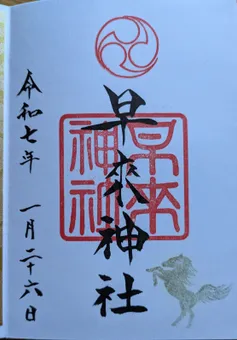 早來神社
早来
神社
令和七年
一月二十六日